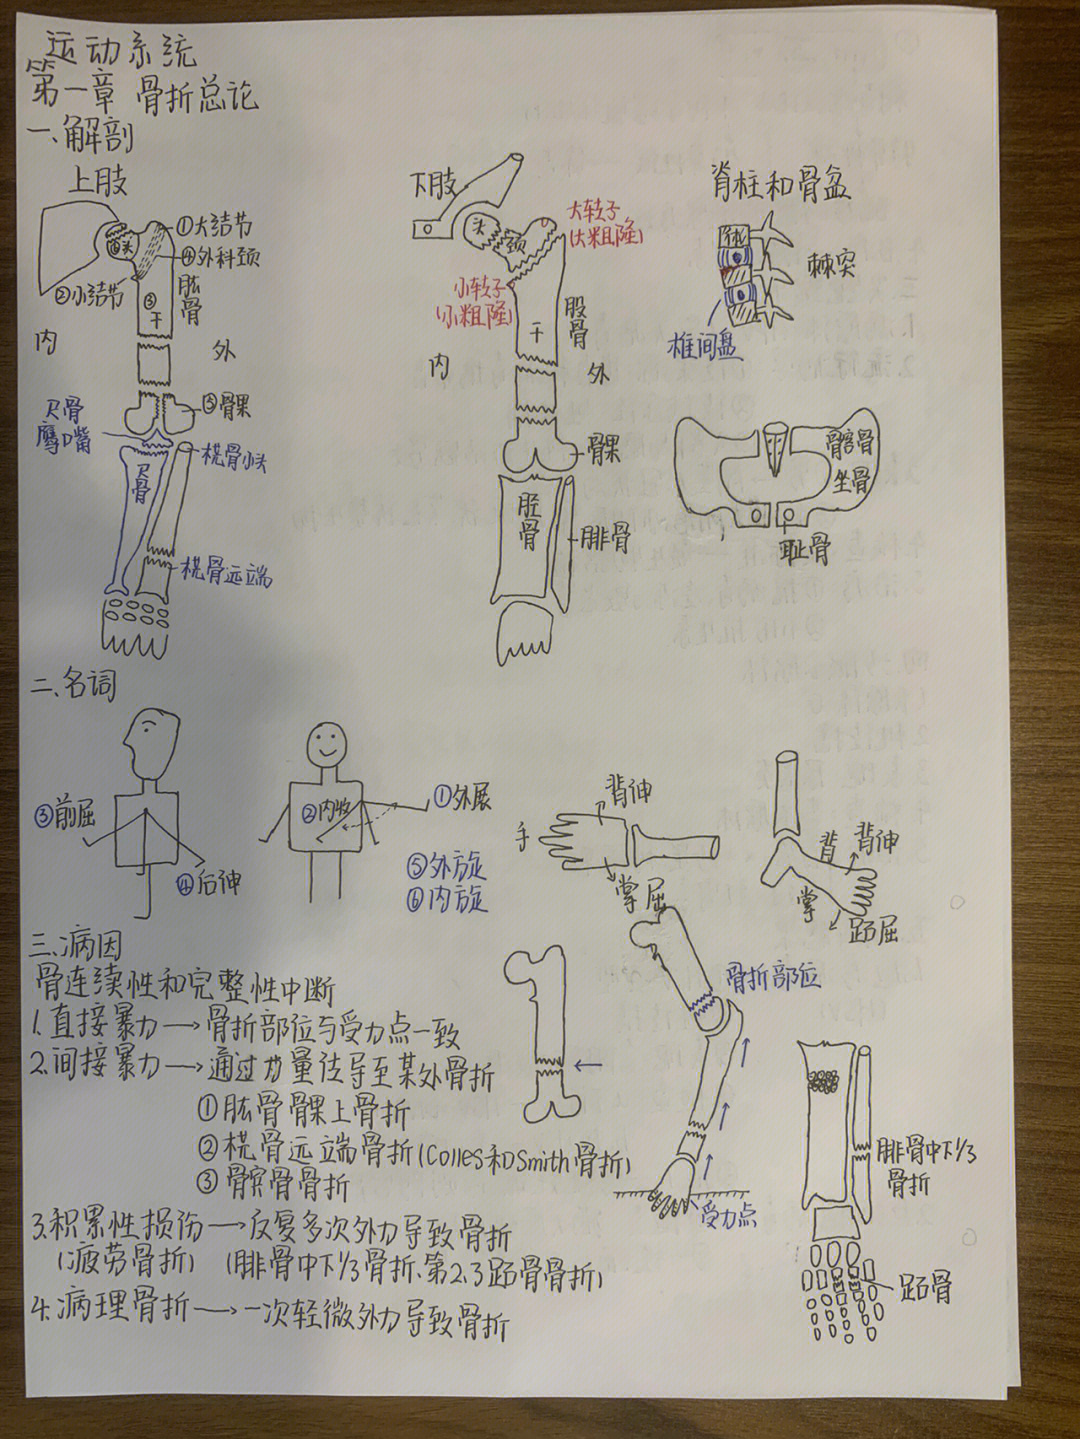 运动系统
第一章 骨折总论
一、解剖
上肢
①大结节
④外科颈
头
②小结节
肱骨
③
干
内
外
⑤骨果
尺骨
鹰口嘴
桡骨小头
尺骨
桡骨远端
下肢
头
颈
大转子
(大粗隆)
小转子
(小粗隆)
股骨
干
内
外
骨果
胫骨
腓骨
脊柱和骨盆
体
棘突
椎间盘
髂骨
坐骨
耻骨
二、名词
③前屈
④后伸
②内收
①外展
⑤外旋
⑥内旋
手
背伸
掌屈
背
背伸
掌
跖屈
三、病因
骨连续性和完整性中断
1.直接暴力→骨折部位与受力点一致
2.间接暴力→通过力量传导至某处骨折
①肱骨骨果上骨折
②桡骨远端骨折(Colles和Smith骨折)
③髌骨骨折
3.积累性损伤→反复多次外力导致骨折
(疲劳骨折) (腓骨中下1/3骨折、第2.3跖骨骨折)
4.病理骨折→一次轻微外力导致骨折
骨折部位
受力点
腓骨中下1/3
骨折
跖骨